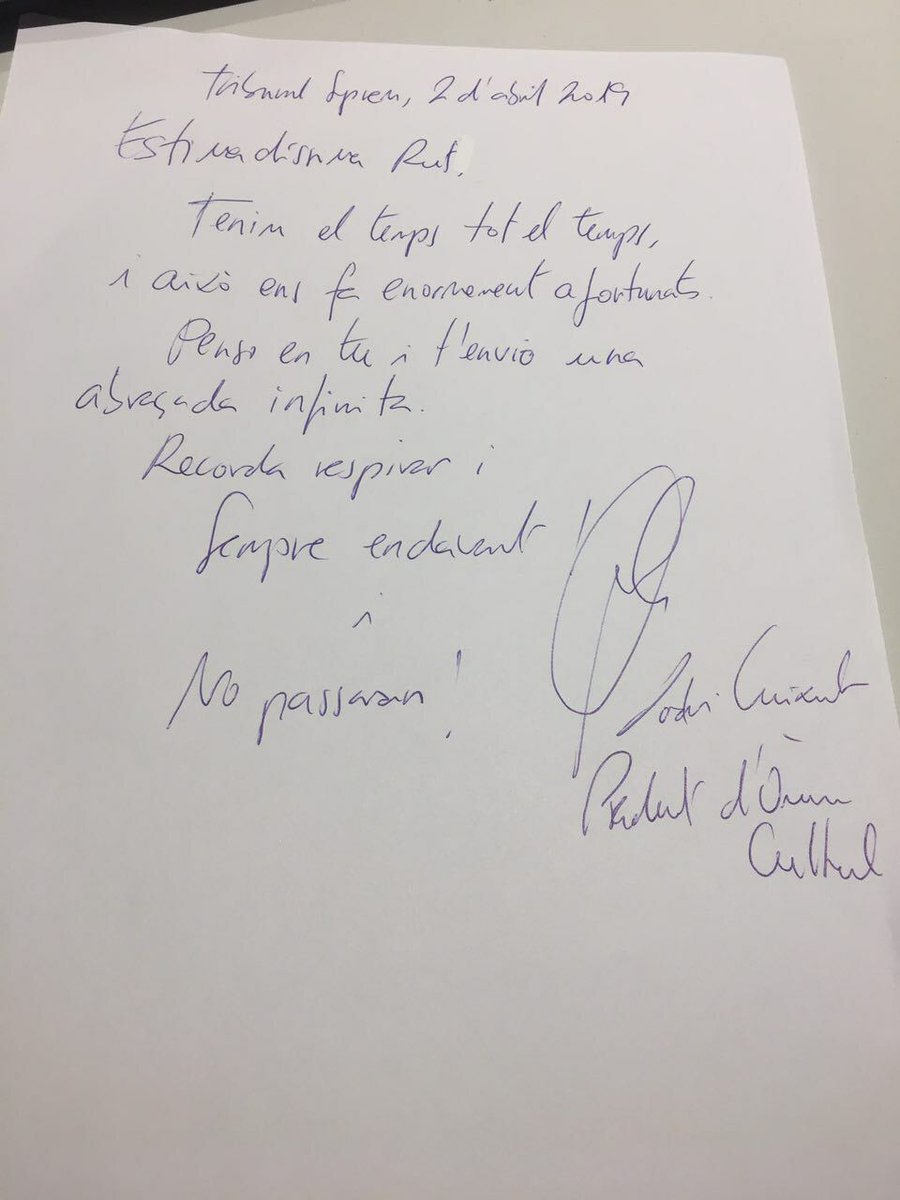 Tribunal Suprem, 2 d'abril 2019
Estimadíssima Rut,
Tenim el temps tot el temps,
i això ens fa enormement afortunats.
Penso en tu i t'envio una
abraçada infinita.
Recorda respirar i
Sempre endavant
i
No passaran!
Jordi Cuixart
President d'Òmnium
Cultural